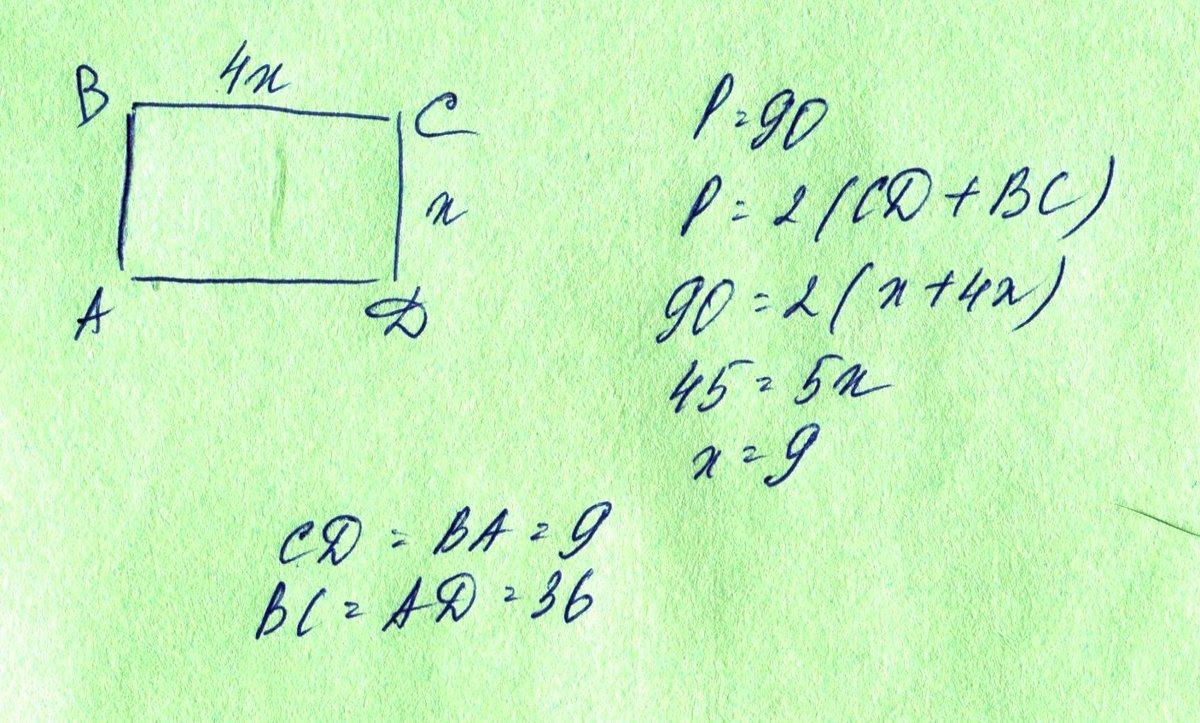 4x
B
C
x
A
D
P=90
P=2(CD+BC)
90=2(x+4x)
45=5x
x=9
CD=BA=9
BC=AD=36